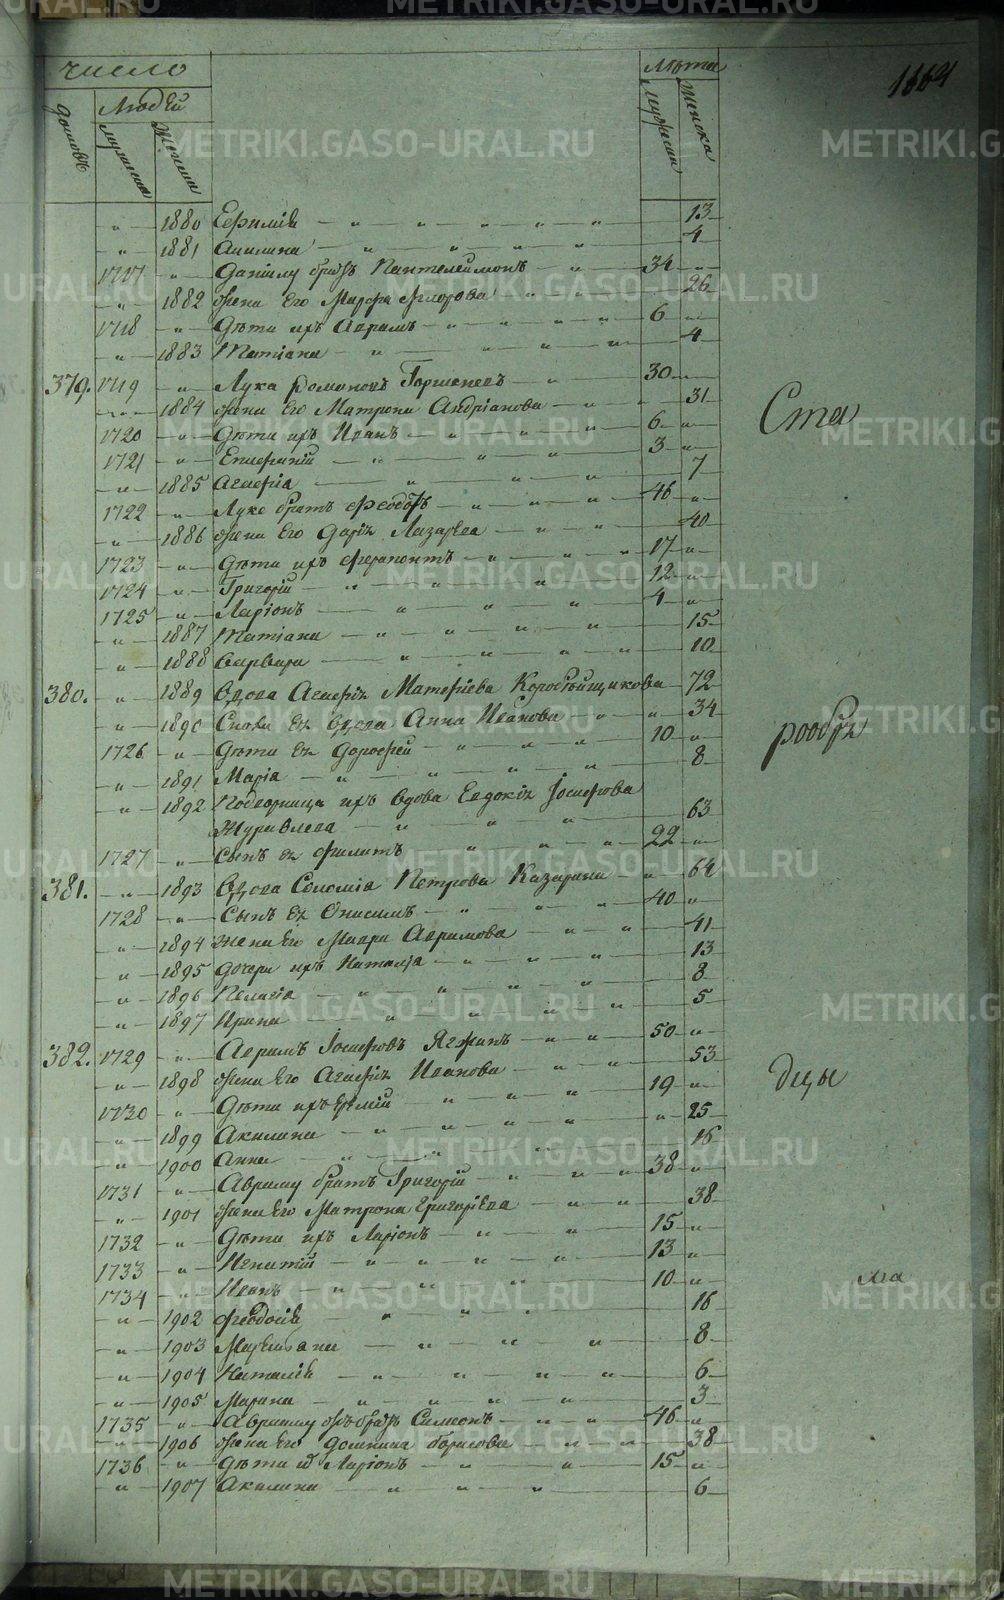 число лѣта 1164
домовъ людей мужеска женска
мужеска женска
" 1880 Евфимія " 13
" 1881 Акилина " 4
1717 " Даніилу братъ Пантелеймонъ " 34 "
" 1882 жена его Марфа " 26
1718 " Дѣти ихъ Аврамъ " 6 "
" 1883 Татіана " 4
379. 1719 " Лука Романовъ Горшеневъ " 30 "
" 1884 жена его Матрона Андріанова " 31
1720 " Дѣти ихъ Иванъ " 6 "
1721 " Епифаній " 3 "
" 1885 Агафія " 7
1722 " Луке братъ Феодоръ " 46 "
" 1886 жена его Дарія Лазарева " 40
1723 " Дѣти ихъ Ферапонтъ " 17 "
1724 " Григорій " 12 "
1725 " Ларіонъ " 4 "
" 1887 Татіана " 15
" 1888 Варвара " 10
380. " 1889 Вдова Агафія Матфіева Коробѣйщикова 72
" 1890 Сноха ея вдова Анна Иванова " 34
1726 " Дѣти ея Дорофей " 10 "
" 1891 Марія " 8
" 1892 Подворница ихъ вдова Евдокія Іосифова
Журавлева " 63
1727 " Сынъ ея Филатъ " 22 "
381. " 1893 Вдова Соломія Петрова Казарина " 64
1728 " Сынъ ея Онисимъ " 40 "
" 1894 жена его Мавра Аврамова " 41
" 1895 Дочери ихъ Наталія " 13
" 1896 Пелагія " 8
" 1897 Ирина " 5
382. 1729 " Аврамъ Іосифовъ " 50 "
" 1898 жена его Агафія Иванова " 53
1730 " Дѣти ихъ " 19 "
" 1899 Акилина " 25
" 1900 Анна " 16
1731 " Авраму братъ Григорій " 38 "
" 1901 жена его Матрона Григоріева " 38
1732 " Дѣти ихъ Ларіонъ " 15 "
1733 " Игнатій " 13 "
1734 " Иванъ " 10 "
" 1902 Феодосія " 16
" 1903 " 8
" 1904 Наталія " 6
" 1905 Марина " 3
1735 " Авраму братъ Симеонъ " 46 "
" 1906 жена его Домнина Борисова " 38
1736 " Дѣти Ларіонъ " 15 "
" 1907 Акилина " 6
Ста
рообря
дцы
METRIKI.GASO-URAL.RU